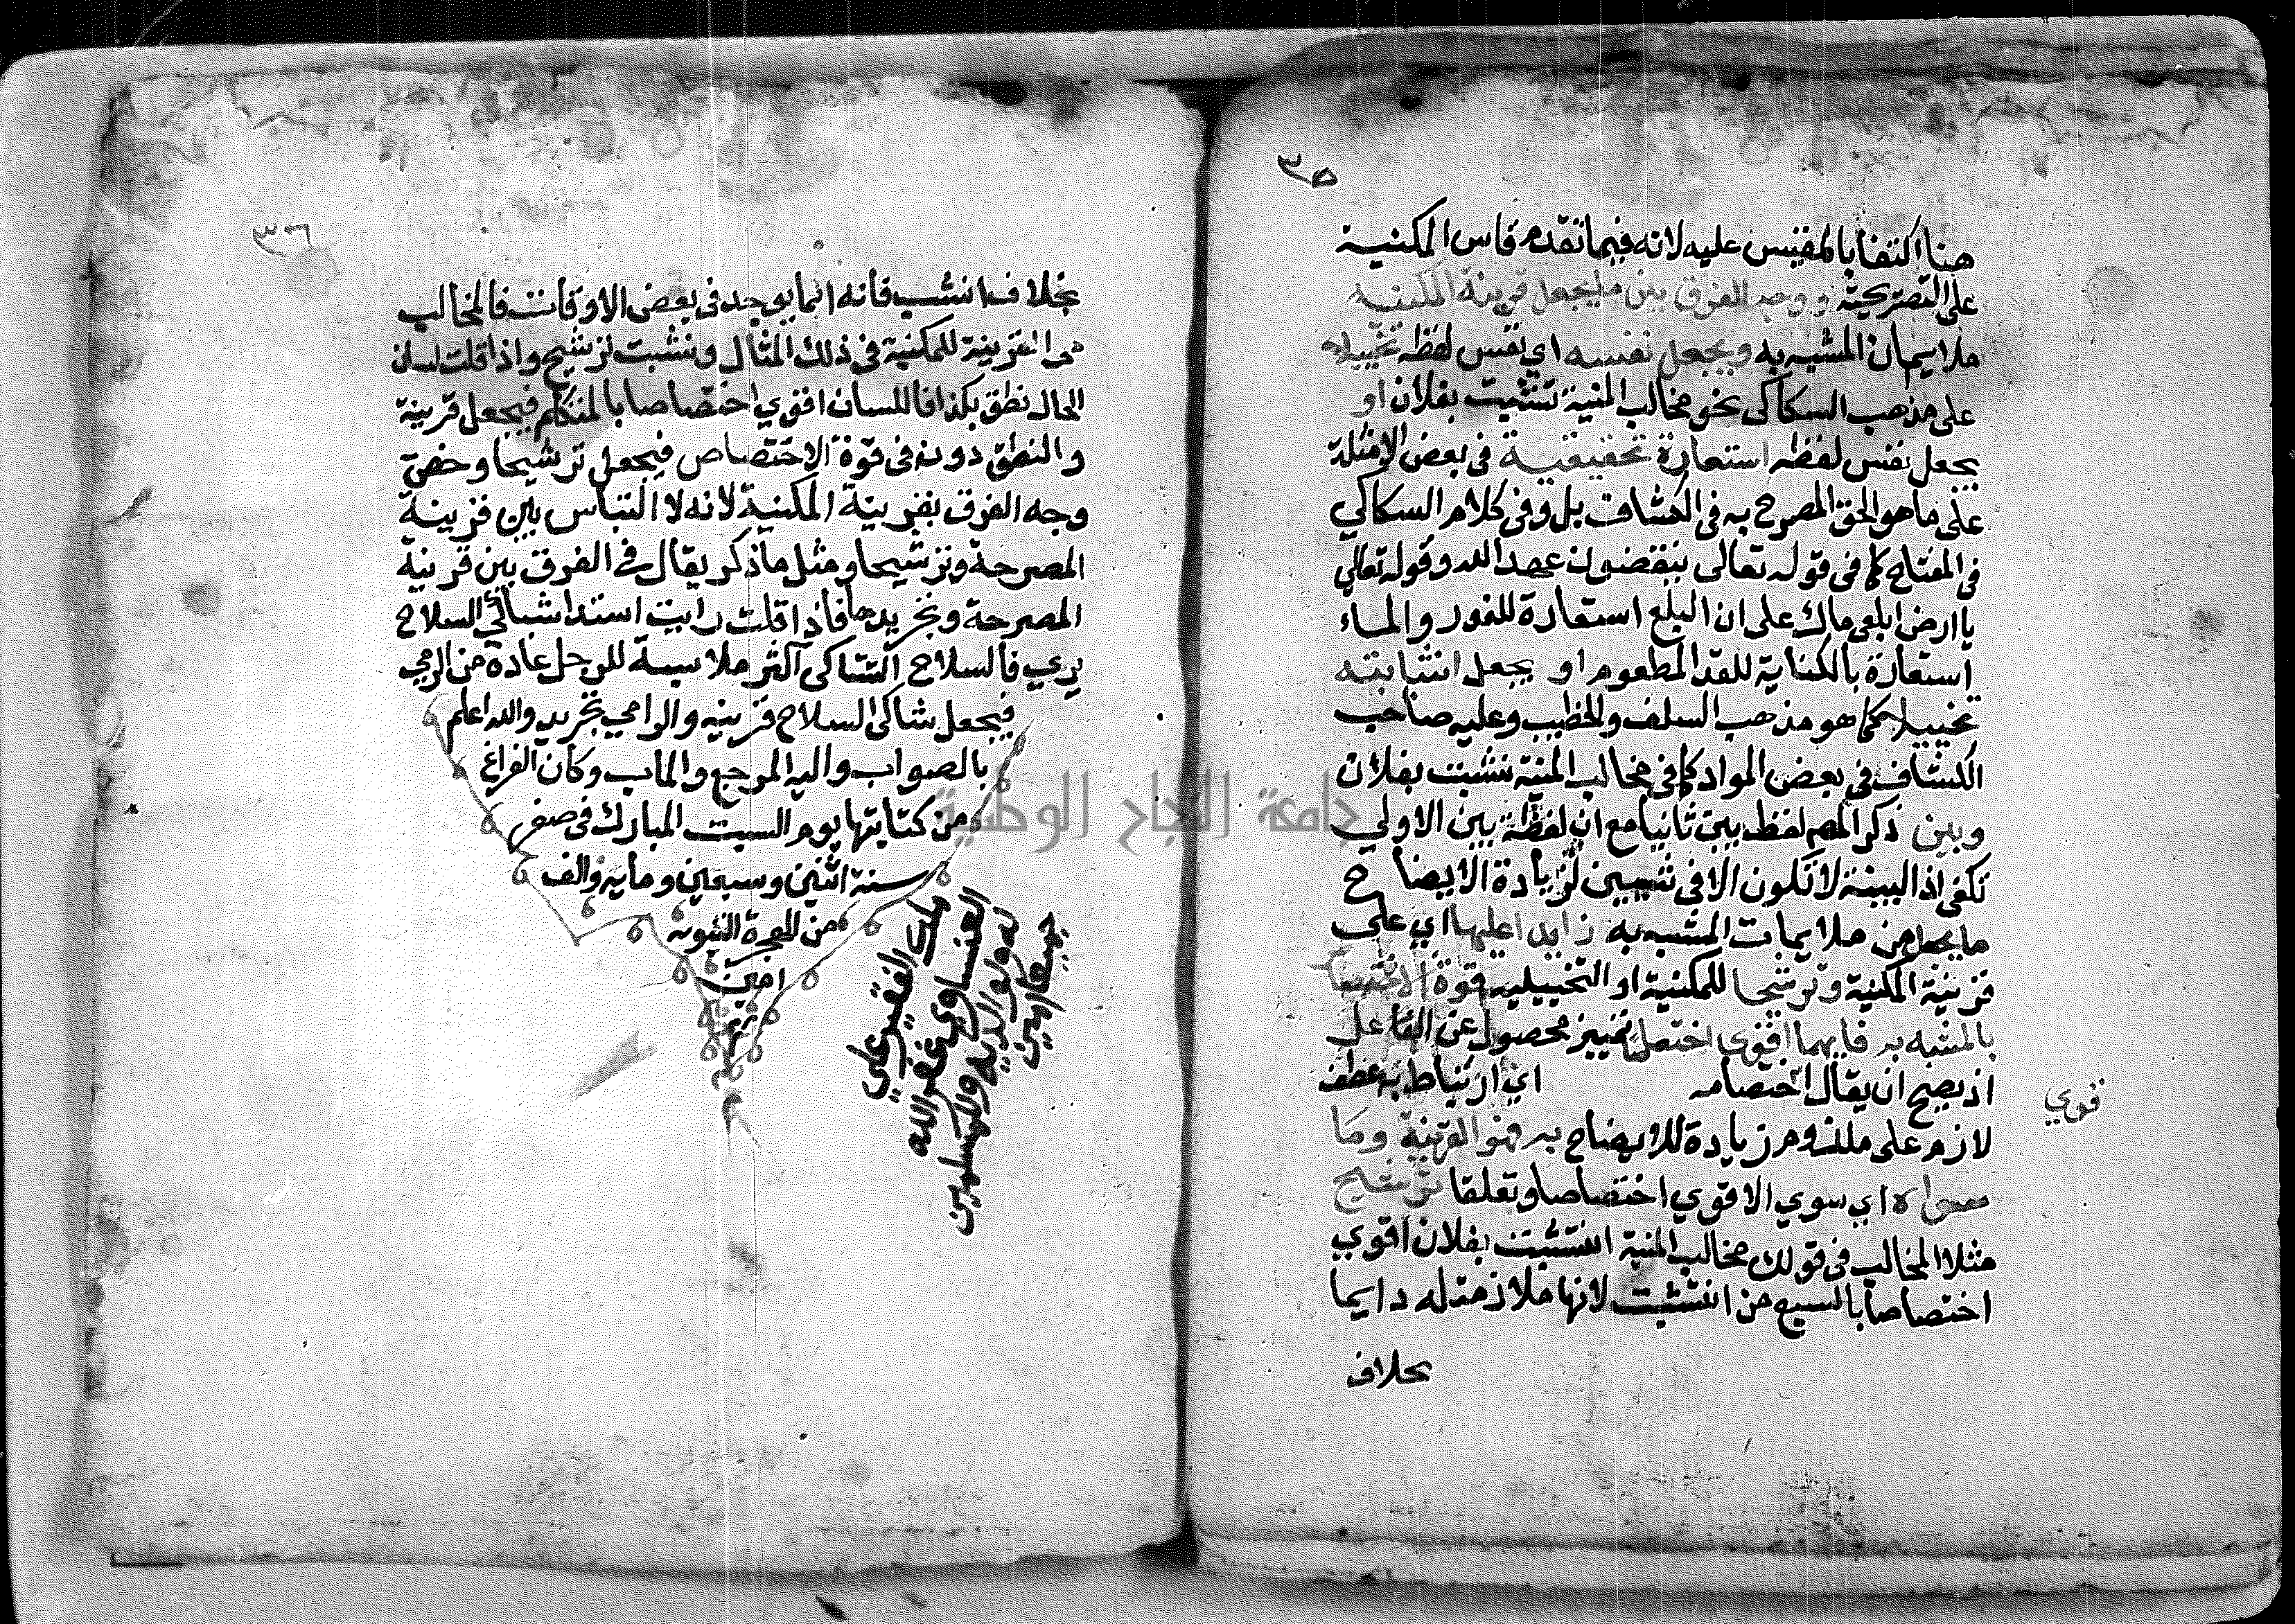 ٣٥
هنا اكتفا بالمقيس عليه لانه فيما تقدم قاس المكنية
على التصريحية ووجه الفرق بين ما يجعل قرينة المكنية
ملايمان المشبه به ويجعل نفسه اي نفس لفظه تخييلا
على مذهب السكاكى نحو مخالب المنية نشبت بفلان او
يجعل نفس لفظه استعارة تحقيقية في بعض الامثلة
على ما هو الحق المصرح به فى الكشاف بل وفى كلام السكاكي
فى المفتاح كما فى قوله تعالى ينقضون عهد الله وقوله تعالى
يا ارض ابلعى ماك على ان البلع استعارة للغور والماء
استعارة بالكناية للغذا المطعوم او يجعل اثباته
تخييلا كما هو مذهب السلف والخطيب وعليه صاحب
الكشاف فى بعض المواد كما فى مخالب المنية نشبت بفلان
وبين ذكر المص لفظ بين ثانيا مع ان لفظة بين الاولي
تكفى اذ البينة لا تكون الا في شيين لزيادة الايضاح
ما يجعل من ملايمات المشبه به زايدا عليها اي على
قرينة المكنية وترشيحا للمكنية او التخييلية قوة الاختصا
بالمشبه به فايهما اقوى اختصا تمييز محصول عن الفاعل
اذ يصح ان يقال اختصامه اي ارتباط به عطف
قوي
لازم على ملزوم زيادة للايضاح به فهو القرينة وما
سواه اي سوي الاقوي اختصاصا وتعلقا ترشيح
مثلا المخالب فى قولك مخالب المنية انشبت بفلان اقوي
اختصاصا بالسبع من انشبت لانها ملازمة له دايما
بخلاف
٣٦
بخلاف انشب فانه انما يوجد فى بعض الاوقات فالمخالب
هى القرينة للمكنية فى ذلك المثال ونشبت ترشيح واذا قلت لسان
الحال نطق بكذا فاللسان اقوي اختصاصا بالمتكلم فيجعل قرينة
والنطق دونه فى قوة الاختصاص فيجعل ترشيحا وخص
وجه الفرق بقرينة المكنية لانه لا التباس بين قرينة
المصرحة وترشيحا ومثل ما ذكر يقال فى الفرق بين قرينة
المصرحة وتجريدها فاذا قلت رايت اسدا شاكي السلاح
يرمي فالسلاح الشاكى اكثر ملابسة للرجل عادة من الرمي
فيجعل شاكى السلاح قرينه والرامي تجريد والله اعلم
بالصواب واليه المرجع والماب وكان الفراغ
من كتابتها يوم السبت المبارك فى صفر
سنة اثنين وسبعين وماية والف
من الهجرة النبوية
امين
ملك الفقير علي
العنساوي غفر الله
له ولوالديه وللمسلمين
جميعا امين
جامعة النجاح الوطنية